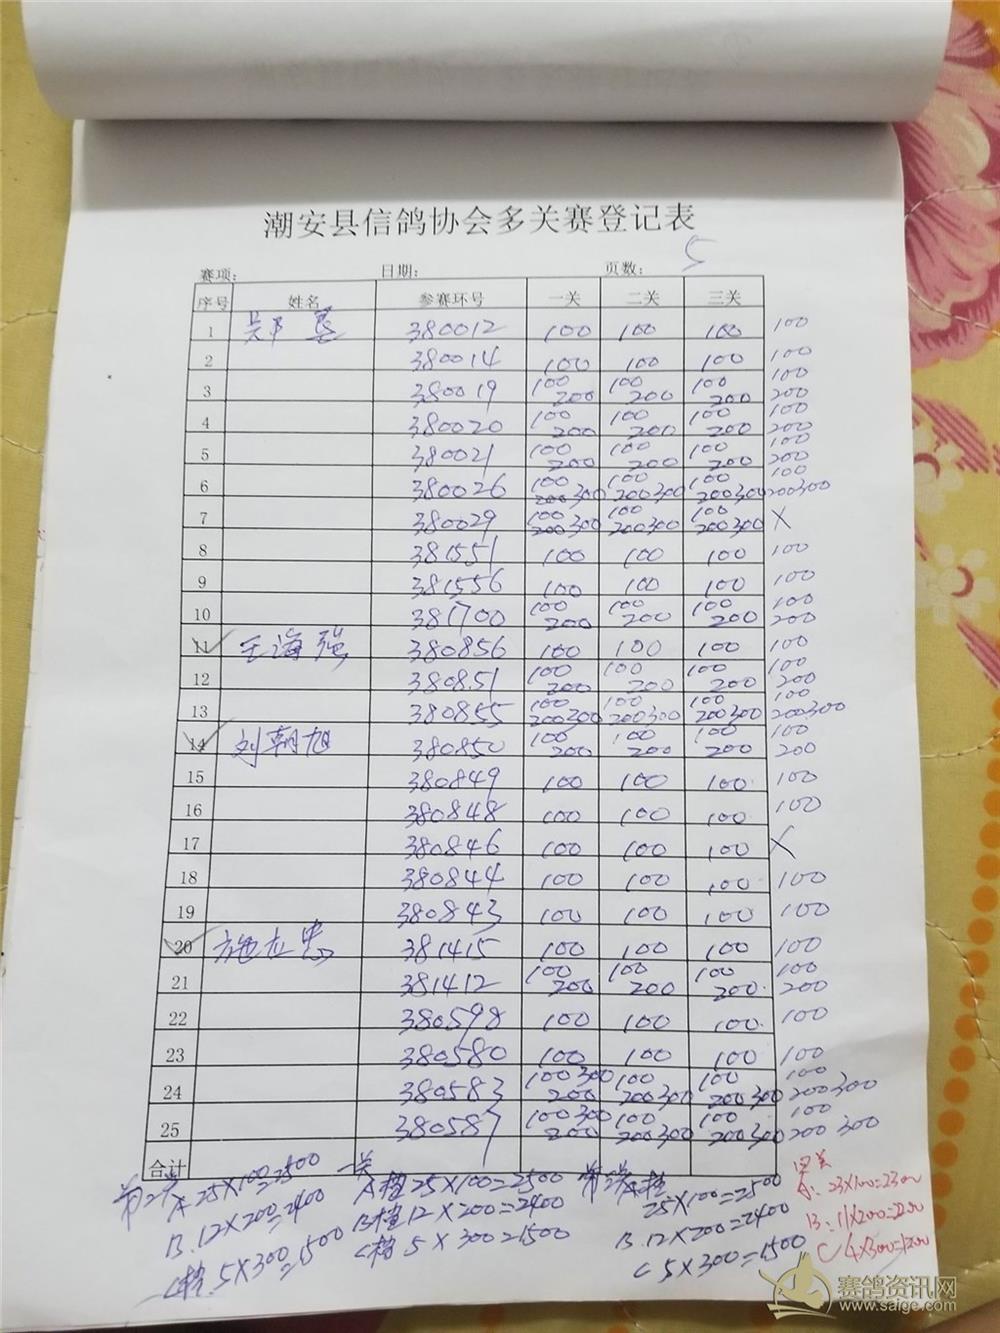 潮安县信鸽协会多关赛登记表
赛项: 日期: 页数: 5
序号 姓名 参赛环号 一关 二关 三关
1 380012 100 100 100 100
2 380014 100 100 100 100
3 380019 100 200 100 200 100 200 100 200
4 380020 100 200 100 200 100 200 100 200
5 380021 100 200 100 200 100 200 100 200
6 380026 100 200 300 100 200 300 100 200 300 100 200 300
7 380029 100 200 300 100 200 300 100 200 300 X
8 381551 100 100 100 100
9 381556 100 100 100 100
10 381700 100 200 100 200 100 200 100 200
11 王海强 380856 100 100 100 100
12 380851 100 200 100 200 100 200 100 200
13 380855 100 200 300 100 200 300 100 200 300 100 200 300
14 刘朝旭 380850 100 200 100 200 100 200 100 200
15 380849 100 100 100 100
16 380848 100 100 100 100
17 380846 100 100 100 X
18 380844 100 100 100 100
19 380843 100 100 100 100
20 施 忠 381415 100 100 100 100
21 381412 100 200 100 200 100 200 100 200
22 380598 100 100 100 100
23 380580 100 100 100 100
24 380583 100 300 200 100 200 300 100 200 300 100 200 300
25 380587 100 300 200 100 200 300 100 200 300 100 200 300
合计
第二关 A 25×100=2500
B. 12×200=2400
C档. 5×300=1500
一关
A档 25×100=2500
B档 12×200=2400
C档 5×300=1500
25×100=2500
B. 12×200=2400
C 5×300=1500
四关
A: 23×100=2300
B: 11×200=2200
C 4×300=1200
赛鸽资讯网
www.saige.com